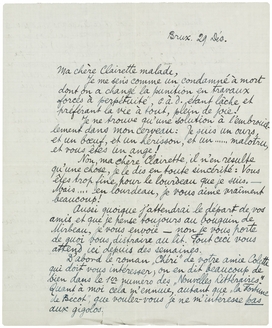 Brux. 29 Déc.
Ma chère Clairette malade,
Je me sens comme un condamné à mort
dont on a changé la punition en travaux
forcés à perpétuité, c.à.d. étant lâche et
préférant la vie à tout, plein de joie!
Je ne trouve qu'une solution à l'embrouil-
lement dans mon cerveau: Je suis un ours
et un bœuf, et un hérisson, et un...... malotru,
et vous êtes un ange!
Non, ma chère Clairette, il n'en resulte
qu'une chose, je le dis en toute sincérité: Vous
êtes trop fine, pour le lourdeau que je suis.—
Mais.... en lourdeau, je vous aime vraiment
beaucoup!
Aussi quoique j'attendrai le départ de vos
amis et que je pense toujours au bouquin de
Mirbeau, je vous envoie — non je vous porte
de quoi vous distraire au lit. Tout ceci vous
attend ici depuis des semaines.
D'abord le roman "Chéri" de votre amie Colette
qui doit vous intéresser, on en dit beaucoup de
bien dans le 12 numéro des Nouvelles littéraires!
Quant à moi cela m'ennuie, autant que la Fortune
de Bécot que voulez-vous je ne m'intéresse pas
aux gigolos.